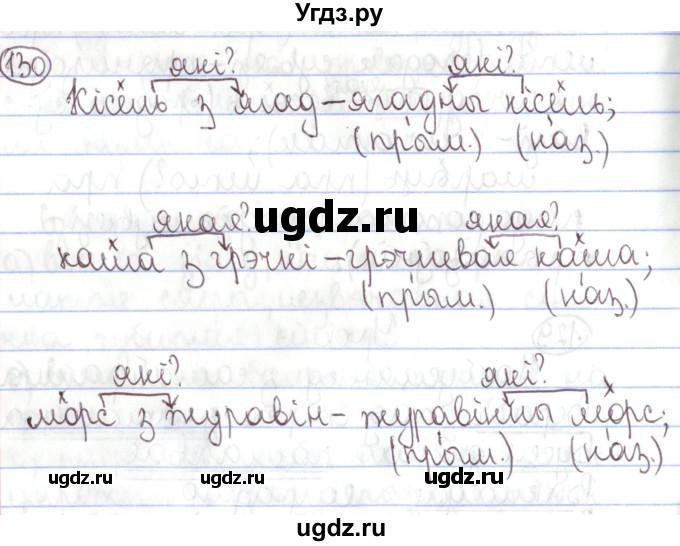 Угдз.ру
130
які? які?
Кісель з ягад – ягадны кісель;
(прым.) (наз.)
ugdz.ru
якая? якая?
каша з грэчкі – грэчневая каша;
(прым.) (наз.)
які? які?
морс з журавін – журавінны морс;
(прым.) (наз.)
ugdz.ru ugdz.ru ugdz.ru ugdz.ru
ugdz.ru